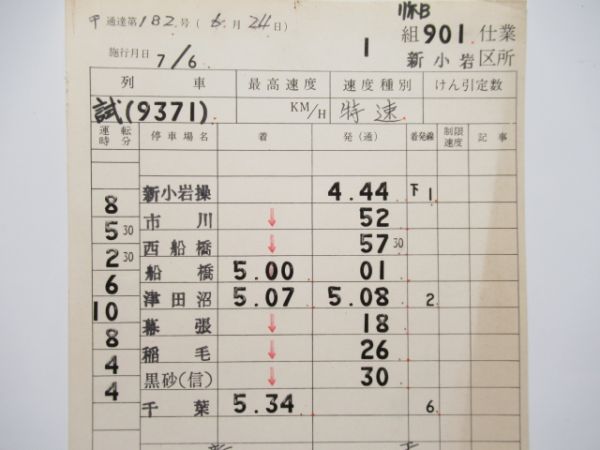 甲 通達第182号(6月24日)
臨B
1 組901仕業
施行月日 7/6 新小岩区所
列車 最高速度 速度種別 けん引定数
試(9371) KM/H 特速
運転時分 停車場名 着 発(通) 着発線 制限速度 記事
新小岩操 4.44 下1
8
市川 ↓ 52
5 30
西船橋 ↓ 57 30
2 30
船橋 5.00 01
6
津田沼 5.07 5.08 2
10
幕張 ↓ 18
8
稲毛 ↓ 26
4
黒砂(信) ↓ 30
4
千葉 5.34 6